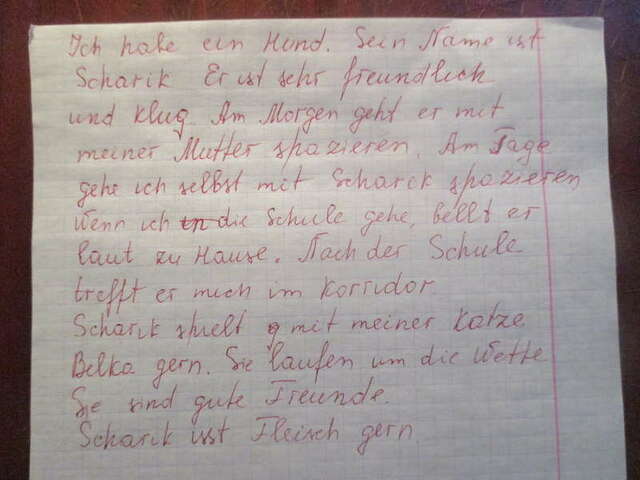 Ich habe ein Hund. Sein Name ist
Scharik Er ist sehr freundlich
und klug. Am Morgen geht er mit
meiner Mutter spazieren. Am Tage
gehe ich selbst mit Scharik spazieren
Wenn ich in die Schule gehe, bellt er
laut zu Hause. Nach der Schule
trefft er mich im Korridor
Scharik spielt mit meiner Katze
Belka gern. Sie laufen um die Wette
Sie sind gute Freunde.
Scharik isst Fleisch gern.